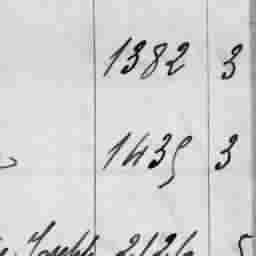 1382 3
1435 3
Joseph 2126 5